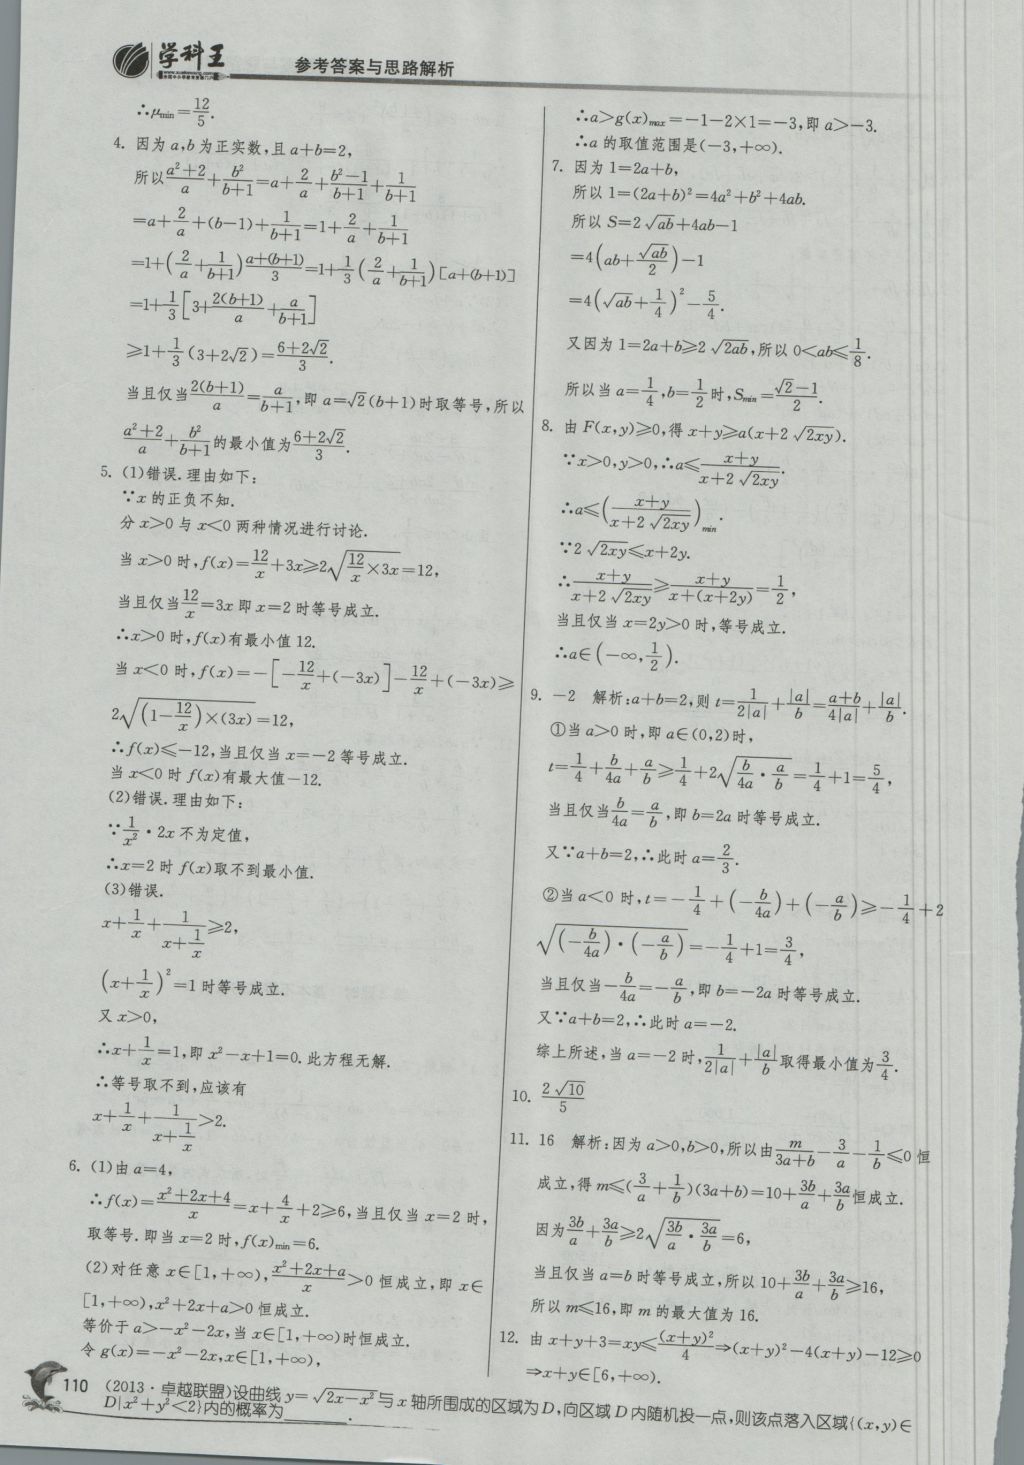 学科王
www.xuekewang.com
参考答案与思路解析
∴μmin=12/5.
4. 因为 a,b 为正实数,且 a+b=2,
所以(a²+2)/a+b²/(b+1)=a+2/a+(b²−1)/(b+1)+1/(b+1)
=a+2/a+(b−1)+1/(b+1)=1+2/a+1/(b+1)
=1+(2/a+1/(b+1))(a+(b+1))/3=1+1/3(2/a+1/(b+1))[a+(b+1)]
=1+1/3[3+2(b+1)/a+a/(b+1)]
≥1+1/3(3+2√2)=(6+2√2)/3.
当且仅当2(b+1)/a=a/(b+1),即 a=√2(b+1)时取等号,所以
(a²+2)/a+b²/(b+1)的最小值为(6+2√2)/3.
5. (1)错误.理由如下:
∵x 的正负不知.
分 x>0 与 x<0 两种情况进行讨论.
当 x>0 时,f(x)=12/x+3x≥2√(12/x×3x)=12,
当且仅当12/x=3x 即 x=2 时等号成立.
∴x>0 时,f(x)有最小值 12.
当 x<0 时,f(x)=−[−12/x+(−3x)]−12/x+(−3x)≥
2√((1−12/x)×(3x))=12,
∴f(x)≤−12,当且仅当 x=−2 等号成立.
当 x<0 时 f(x)有最大值−12.
(2)错误.理由如下:
∵1/x²·2x 不为定值,
∴x=2 时 f(x)取不到最小值.
(3)错误.
x+1/x+1/(x+1/x)≥2,
(x+1/x)²=1 时等号成立.
又 x>0,
∴x+1/x=1,即 x²−x+1=0.此方程无解.
∴等号取不到,应该有
x+1/x+1/(x+1/x)>2.
6. (1)由 a=4,
∴f(x)=(x²+2x+4)/x=x+4/x+2≥6,当且仅当 x=2 时,
取等号.即当 x=2 时,f(x)min=6.
(2)对任意 x∈[1,+∞),(x²+2x+a)/x>0 恒成立,即 x∈
[1,+∞),x²+2x+a>0 恒成立.
等价于 a>−x²−2x,当 x∈[1,+∞)时恒成立.
令 g(x)=−x²−2x,x∈[1,+∞),
∴a>g(x)max=−1−2×1=−3,即 a>−3.
∴a 的取值范围是(−3,+∞).
7. 因为 1=2a+b,
所以 1=(2a+b)²=4a²+b²+4ab.
所以 S=2√ab+4ab−1
=4(ab+√ab/2)−1
=4(√ab+1/4)²−5/4.
又因为 1=2a+b≥2√2ab,所以 0<ab≤1/8.
所以当 a=1/4,b=1/2时,Smin=(√2−1)/2.
8. 由 F(x,y)≥0,得 x+y≥a(x+2√2xy).
∵x>0,y>0,∴a≤(x+y)/(x+2√2xy).
∴a≤((x+y)/(x+2√2xy))min.
∵2√2xy≤x+2y.
∴(x+y)/(x+2√2xy)≥(x+y)/(x+(x+2y))=1/2,
当且仅当 x=2y>0 时,等号成立.
∴a∈(−∞,1/2).
9. −2 解析:a+b=2,则 t=1/(2|a|)+|a|/b=(a+b)/(4|a|)+|a|/b.
①当 a>0 时,即 a∈(0,2)时,
t=1/4+b/4a+a/b≥1/4+2√(b/4a·a/b)=1/4+1=5/4,
当且仅当b/4a=a/b,即 b=2a 时等号成立.
又∵a+b=2,∴此时 a=2/3.
②当 a<0 时,t=−1/4+(−b/4a)+(−a/b)≥−1/4+2
√((−b/4a)·(−a/b))=−1/4+1=3/4,
当且仅当−b/4a=−a/b,即 b=−2a 时等号成立.
又∵a+b=2,∴此时 a=−2.
综上所述,当 a=−2 时,1/(2|a|)+|a|/b取得最小值为3/4.
10. 2√10/5
11. 16 解析:因为 a>0,b>0,所以由m/(3a+b)−3/a−1/b≤0 恒
成立,得 m≤(3/a+1/b)(3a+b)=10+3b/a+3a/b恒成立.
因为3b/a+3a/b≥2√(3b/a·3a/b)=6,
当且仅当 a=b 时等号成立,所以 10+3b/a+3a/b≥16,
所以 m≤16,即 m 的最大值为 16.
12. 由 x+y+3=xy≤(x+y)²/4⇒(x+y)²−4(x+y)−12≥0
⇒x+y∈[6,+∞).
110 (2013·卓越联盟)设曲线 y=√(2x−x²)与 x 轴所围成的区域为 D,向区域 D 内随机投一点,则该点落入区域{(x,y)∈
D|x²+y²<2}内的概率为______.